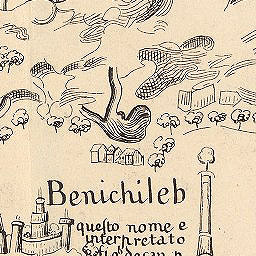 Benichileb
questo nome e
interpretato